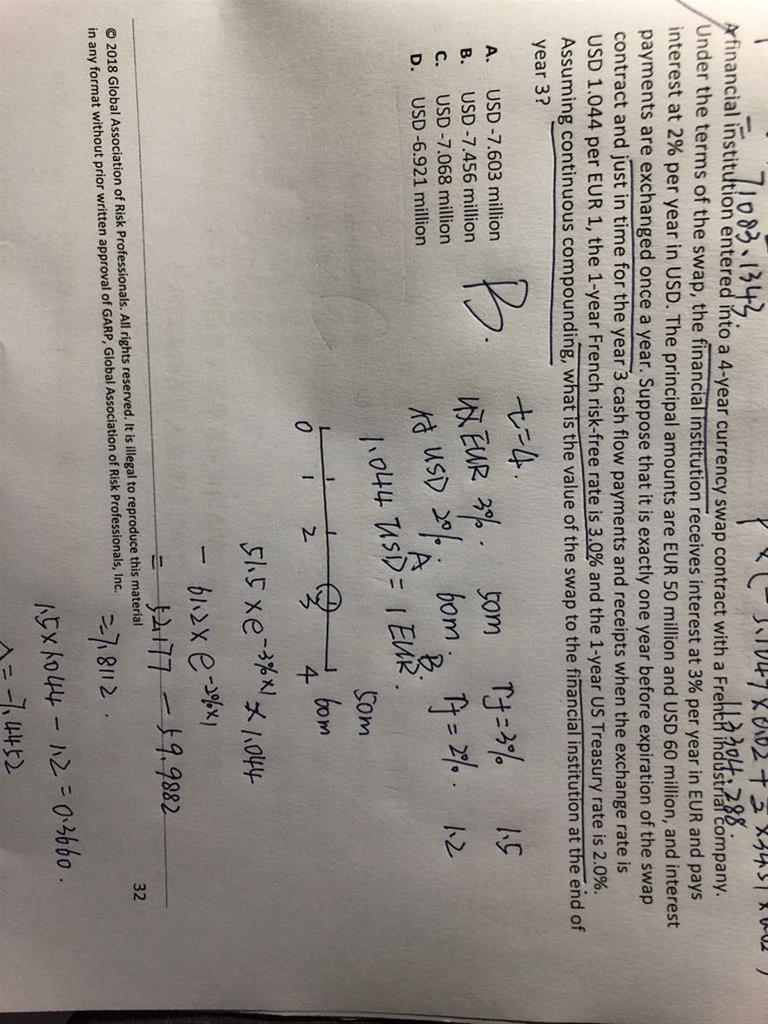 71083.1343.
113304.288.
A financial institution entered into a 4-year currency swap contract with a French industrial company.
Under the terms of the swap, the financial institution receives interest at 3% per year in EUR and pays
interest at 2% per year in USD. The principal amounts are EUR 50 million and USD 60 million, and interest
payments are exchanged once a year. Suppose that it is exactly one year before expiration of the swap
contract and just in time for the year 3 cash flow payments and receipts when the exchange rate is
USD 1.044 per EUR 1, the 1-year French risk-free rate is 3.0% and the 1-year US Treasury rate is 2.0%.
Assuming continuous compounding, what is the value of the swap to the financial institution at the end of
year 3?
A. USD -7.603 million
B. USD -7.456 million
C. USD -7.068 million
D. USD -6.921 million
B.
t=4.
收 EUR 3%. 50m rf=3% 1.5
付 USD 2%. 60m. rf=2%. 1.2
A B.
1.044 USD = 1 EUR.
50m
0 1 2 3 4 60m
51.5 × e^-3%×1 × 1.044
- 61.2 × e^-2%×1
= 52.177 - 59.9882
= 7.8112.
1.5×1.044 - 1.2 = 0.3660.
= -7.4452
32
© 2018 Global Association of Risk Professionals. All rights reserved. It is illegal to reproduce this material
in any format without prior written approval of GARP, Global Association of Risk Professionals, Inc.